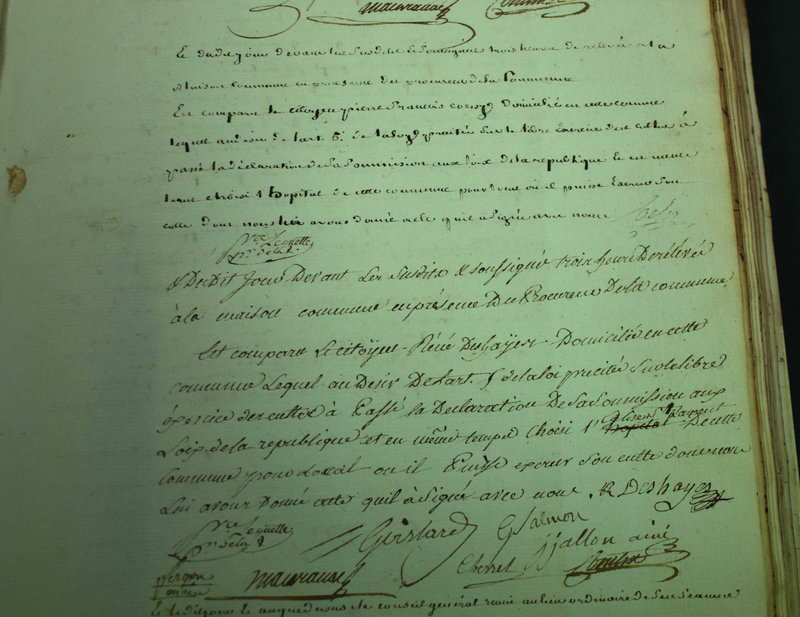 maurausse
Le dudit jour devant les susdits et soussignés trois heures de relevée a la
Maison Commune en présence du procureur de la Commune
Est comparu le citoyen pierre francois domicilié en cette commune
lequel au désir de l'art. 5. de la loy précitée sur le libre Exercice des cultes à
passé la déclaration de sa soumission aux loix de la republique et en meme
tems choisi l'hopital de cette commune pour local où il puisse Exercer son
culte dont nous lui avons donné acte qu'il a signé avec nous
Dudit Jour Devant Les Susdits & Soussignés trois heure De relevée
à la maison commune en présence Du Procureur De la commune
Est comparu Le citoyen René Deshayes Domicilié en cette
commune Lequel au Desir De l'art. 5 de la loi précitée sur le libre
éxercice des cultes à Passé la Declaration De sa Soumission aux
Loix de la republique et en même temps Choisi l' De cette
Commune pour Local ou il Puisse exercer Son culte dont nous
Lui avons Donné acte qu'il a Signé avec nous. R Deshayes
Girslard GSalmon
maurausse Cherret jjallon ainé
Et le dit jour le conseil général reuni au lieu ordinaire de ses seances